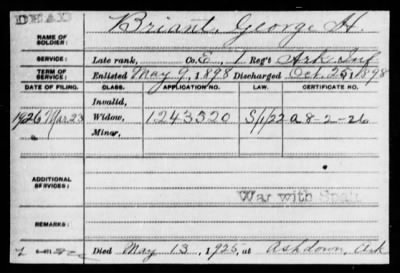 DEAD
NAME OF SOLDIER: Briant, George H.
SERVICE: Late rank, Co. E, 1 Reg't Ark Inf
TERM OF SERVICE: Enlisted May 9, 1898 Discharged Oct. 25, 1898
DATE OF FILING. CLASS. APPLICATION NO. LAW. CERTIFICATE NO.
Invalid,
1926 Mar 23 Widow, 1243320 5/1/22 a 8-2-26
Minor,
ADDITIONAL SERVICES:
War with Spain
REMARKS:
Died May 13, 1925, at Ashdown, Ark